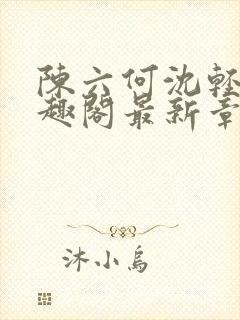 陳六何沈輕
趣閣最新章
沐小烏